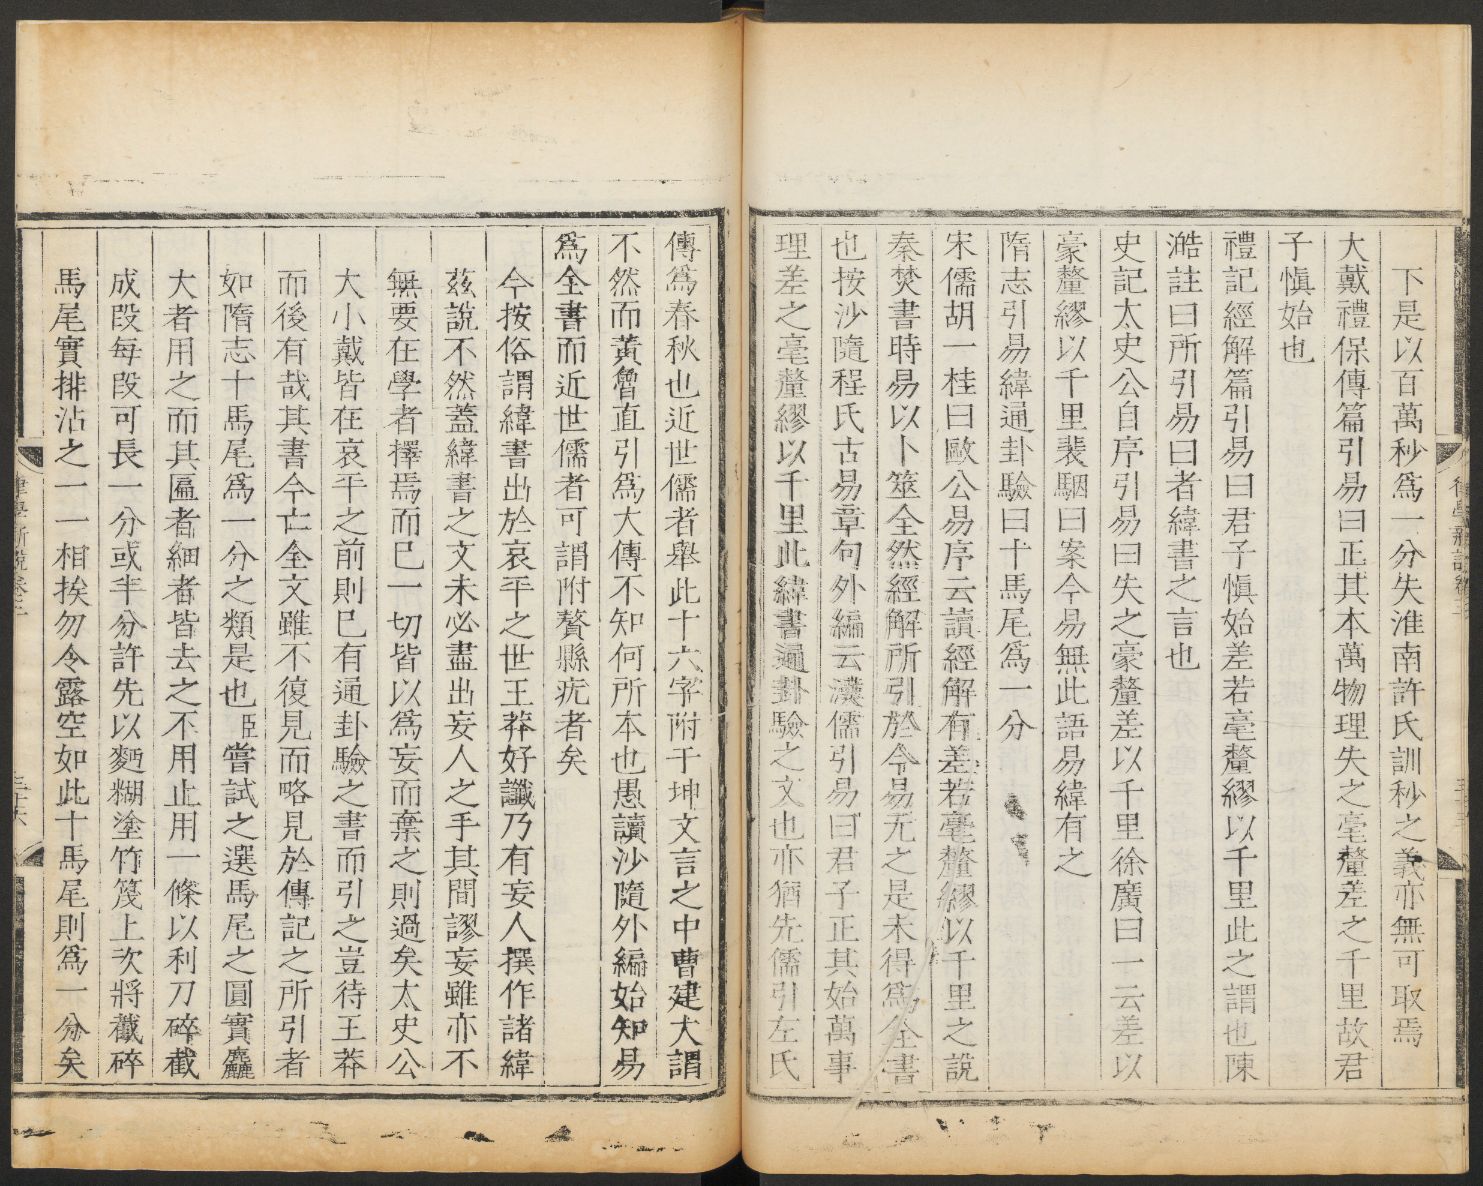 下是以百萬秒爲一分失淮南許氏訓秒之義亦無可取焉
大戴禮保傳篇引易曰正其本萬物理失之毫釐差之千里故君
子愼始也
禮記經解篇引易曰君子愼始差若毫釐繆以千里此之謂也陳
澔註曰所引易曰者緯書之言也
史記太史公自序引易曰失之豪釐差以千里徐廣曰一云差以
豪釐繆以千里裴駰曰案今易無此語易緯有之
隋志引易緯通卦驗曰十馬尾爲一分
宋儒胡一桂曰歐公易序云讀經解有差若毫釐繆以千里之說
秦焚書時易以卜筮全然經解所引於今易无之是未得爲全書
也按沙隨程氏古易章句外編云漢儒引易曰君子正其始萬事
理差之毫釐繆以千里此緯書通卦驗之文也亦猶先儒引左氏
律學新說卷二
傳爲春秋也近世儒者舉此十六字附于坤文言之中曹建大謂
不然而黃曾直引爲大傳不知何所本也愚讀沙隨外編始知易
爲全書而近世儒者可謂附贅縣疣者矣
今按俗謂緯書出於哀平之世王莽好讖乃有妄人撰作諸緯
茲說不然蓋緯書之文未必盡出妄人之手其間謬妄雖亦不
無要在學者擇焉而已一切皆以爲妄而棄之則過矣太史公
大小戴皆在哀平之前則已有通卦驗之書而引之豈待王莽
而後有哉其書今亡全文雖不復見而略見於傳記之所引者
如隋志十馬尾爲一分之類是也臣嘗試之選馬尾之圓實麤
大者用之而其匾者細者皆去之不用止用一條以利刀碎截
成段每段可長一分或半分許先以麪糊塗竹篾上次將截碎
馬尾實排沾之一一相挨勿令露空如此十馬尾則爲一分矣
律學新說卷二
三十六